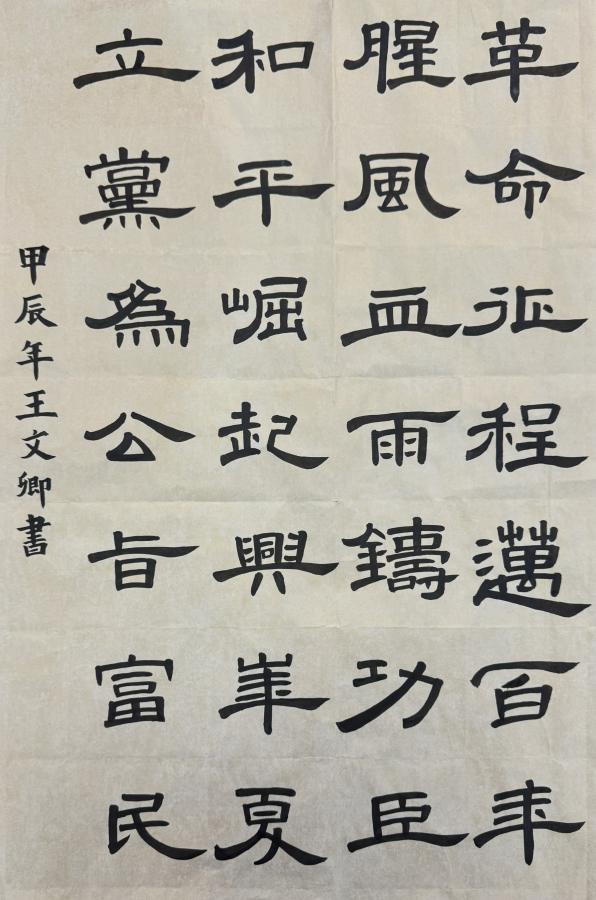 革命征程邁百年
腥風血雨鑄功臣
和平崛起興華夏
立黨為公旨富民
甲辰年王文卿書